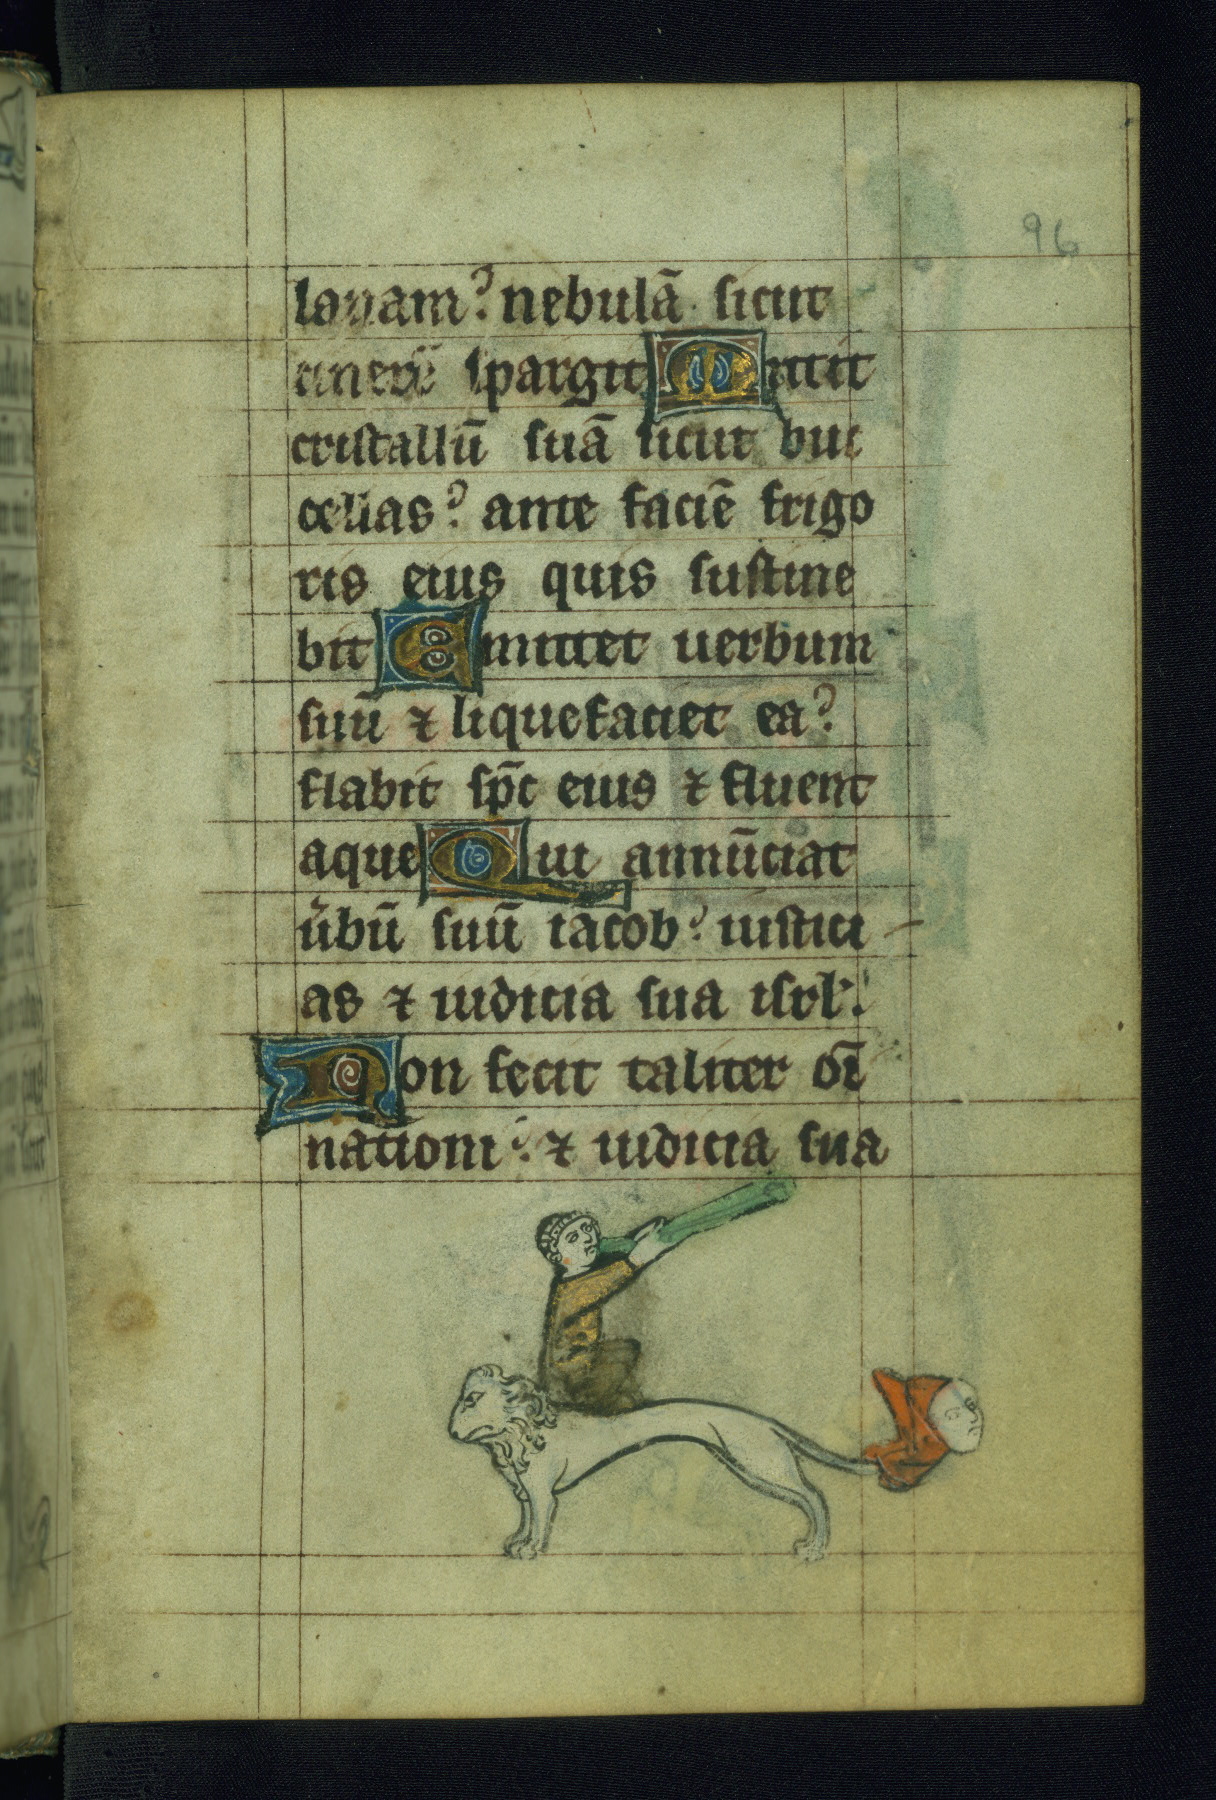 96
lanam? nebulā sicut
cinerē spargit Mittit
cristallū suā sicut buc
cellas? ante faciē frigo
ris eius quis sustine
bit Emittet uerbum
suū ⁊ liquefaciet ea?
flabit sp̄c eius ⁊ fluent
aque Qui annūciat
u̾bū suū iacob? iustici
as ⁊ iudicia sua isrl'.
Non fecit taliter oī
nationi? ⁊ iudicia sua